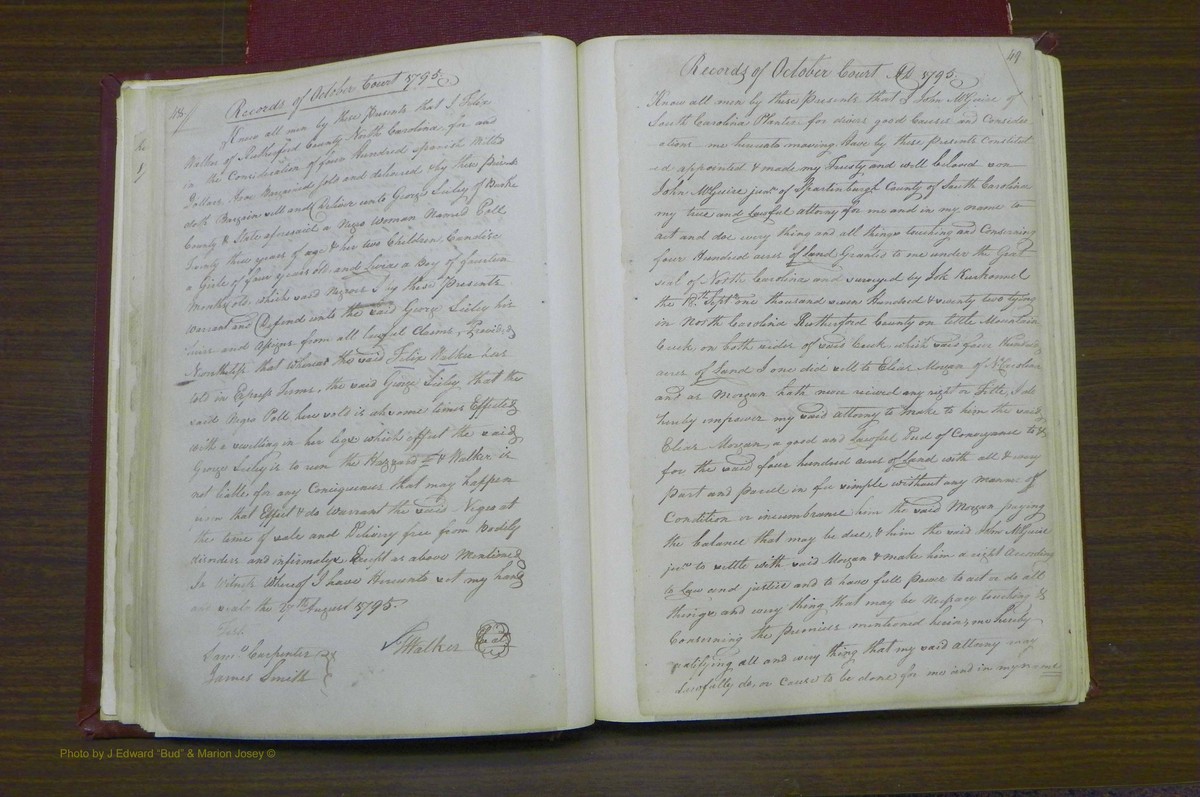 48
Records of October Court 1795.
Know all men by these Presents that I Felix
Walker of Rutherford County North Carolina for and
in the Consideration of four Hundred Spanish Milld
Dollars Have Bargained sold and delivered & by these Presents
doth Bargain sell and Deliver unto George Sisley of Burke
County & State aforesaid a Negro Woman Named Poll
Twenty three years of age & her two Children Candice
a Girle of four years old and a Boy of
Months old, which said Negroes I by these Presents
Warrent and Defend unto the said George Sisley his
heirs and Assigns from all lawful Claims, Provided
Nevertheless that whereas the said Felix Walker has
told in Express Terms, the said George Sisley, that the
said Negro Poll here sold is at some times Effected
with a swelling in her legs which effect the said
George Sisley is to run the Hazzard of & Walker is
not liable for any Consequences that may happen
from that Effect & do Warrant the said Negro at
the time of sale and Delivery free from Bodely
disorders and infirmatys Except as above Mentioned
In Witness Whereof I have hereunto set my hand
and seale the 27th August 1795.
Test
Saml. Carpenter
James Smith
F Walker Seal
49
Records of October Court AD 1795.
Know all men by these Presents that I John McGuire of
South Carolina Planter for divers good Causes and Consider
ations me hereunto moving Have by these presents Constitut
ed appointed & made my Trusty and well beloved son
John McGuire junr. of Spartanburgh County of South Carolina
my true and lawful attorny for me and in my name to
act and doe every thing and all things touching and Conserning
four Hundred acres of Land Granted to me under the Great
seal of North Carolina and surveyed by
the 18th Septr. one thousand seven Hundred & seventy two lying
in North Carolina Rutherford County on little Mountain
Creek on both sides of said Creek which said four Hundred
acres of Land I one did sell to Elear Morgan of N Carolina
and as Morgan hath never received any right or Title, I do
hereby impower my said attorny to make to him the said
Elear Morgan, a good and Lawful Deed of Conveyance to &
for the said four hundred acres of Land with all & every
part and parcel in fee simple without any manner of
Condition or incumbrance him the said Morgan paying
the balance that may be due, & him the said John McGuire
junr. to settle with said Morgan & make him a right According
to Law and justice and to have full power to act or do all
things and every thing that may be Nesesary touching &
Conserning the premises mentioned herein, me hereby
ratifying all and every thing that my said attorny may
lawfully do, or Cause to be done for me and in my name
Photo by J Edward "Bud" & Marion Josey ©